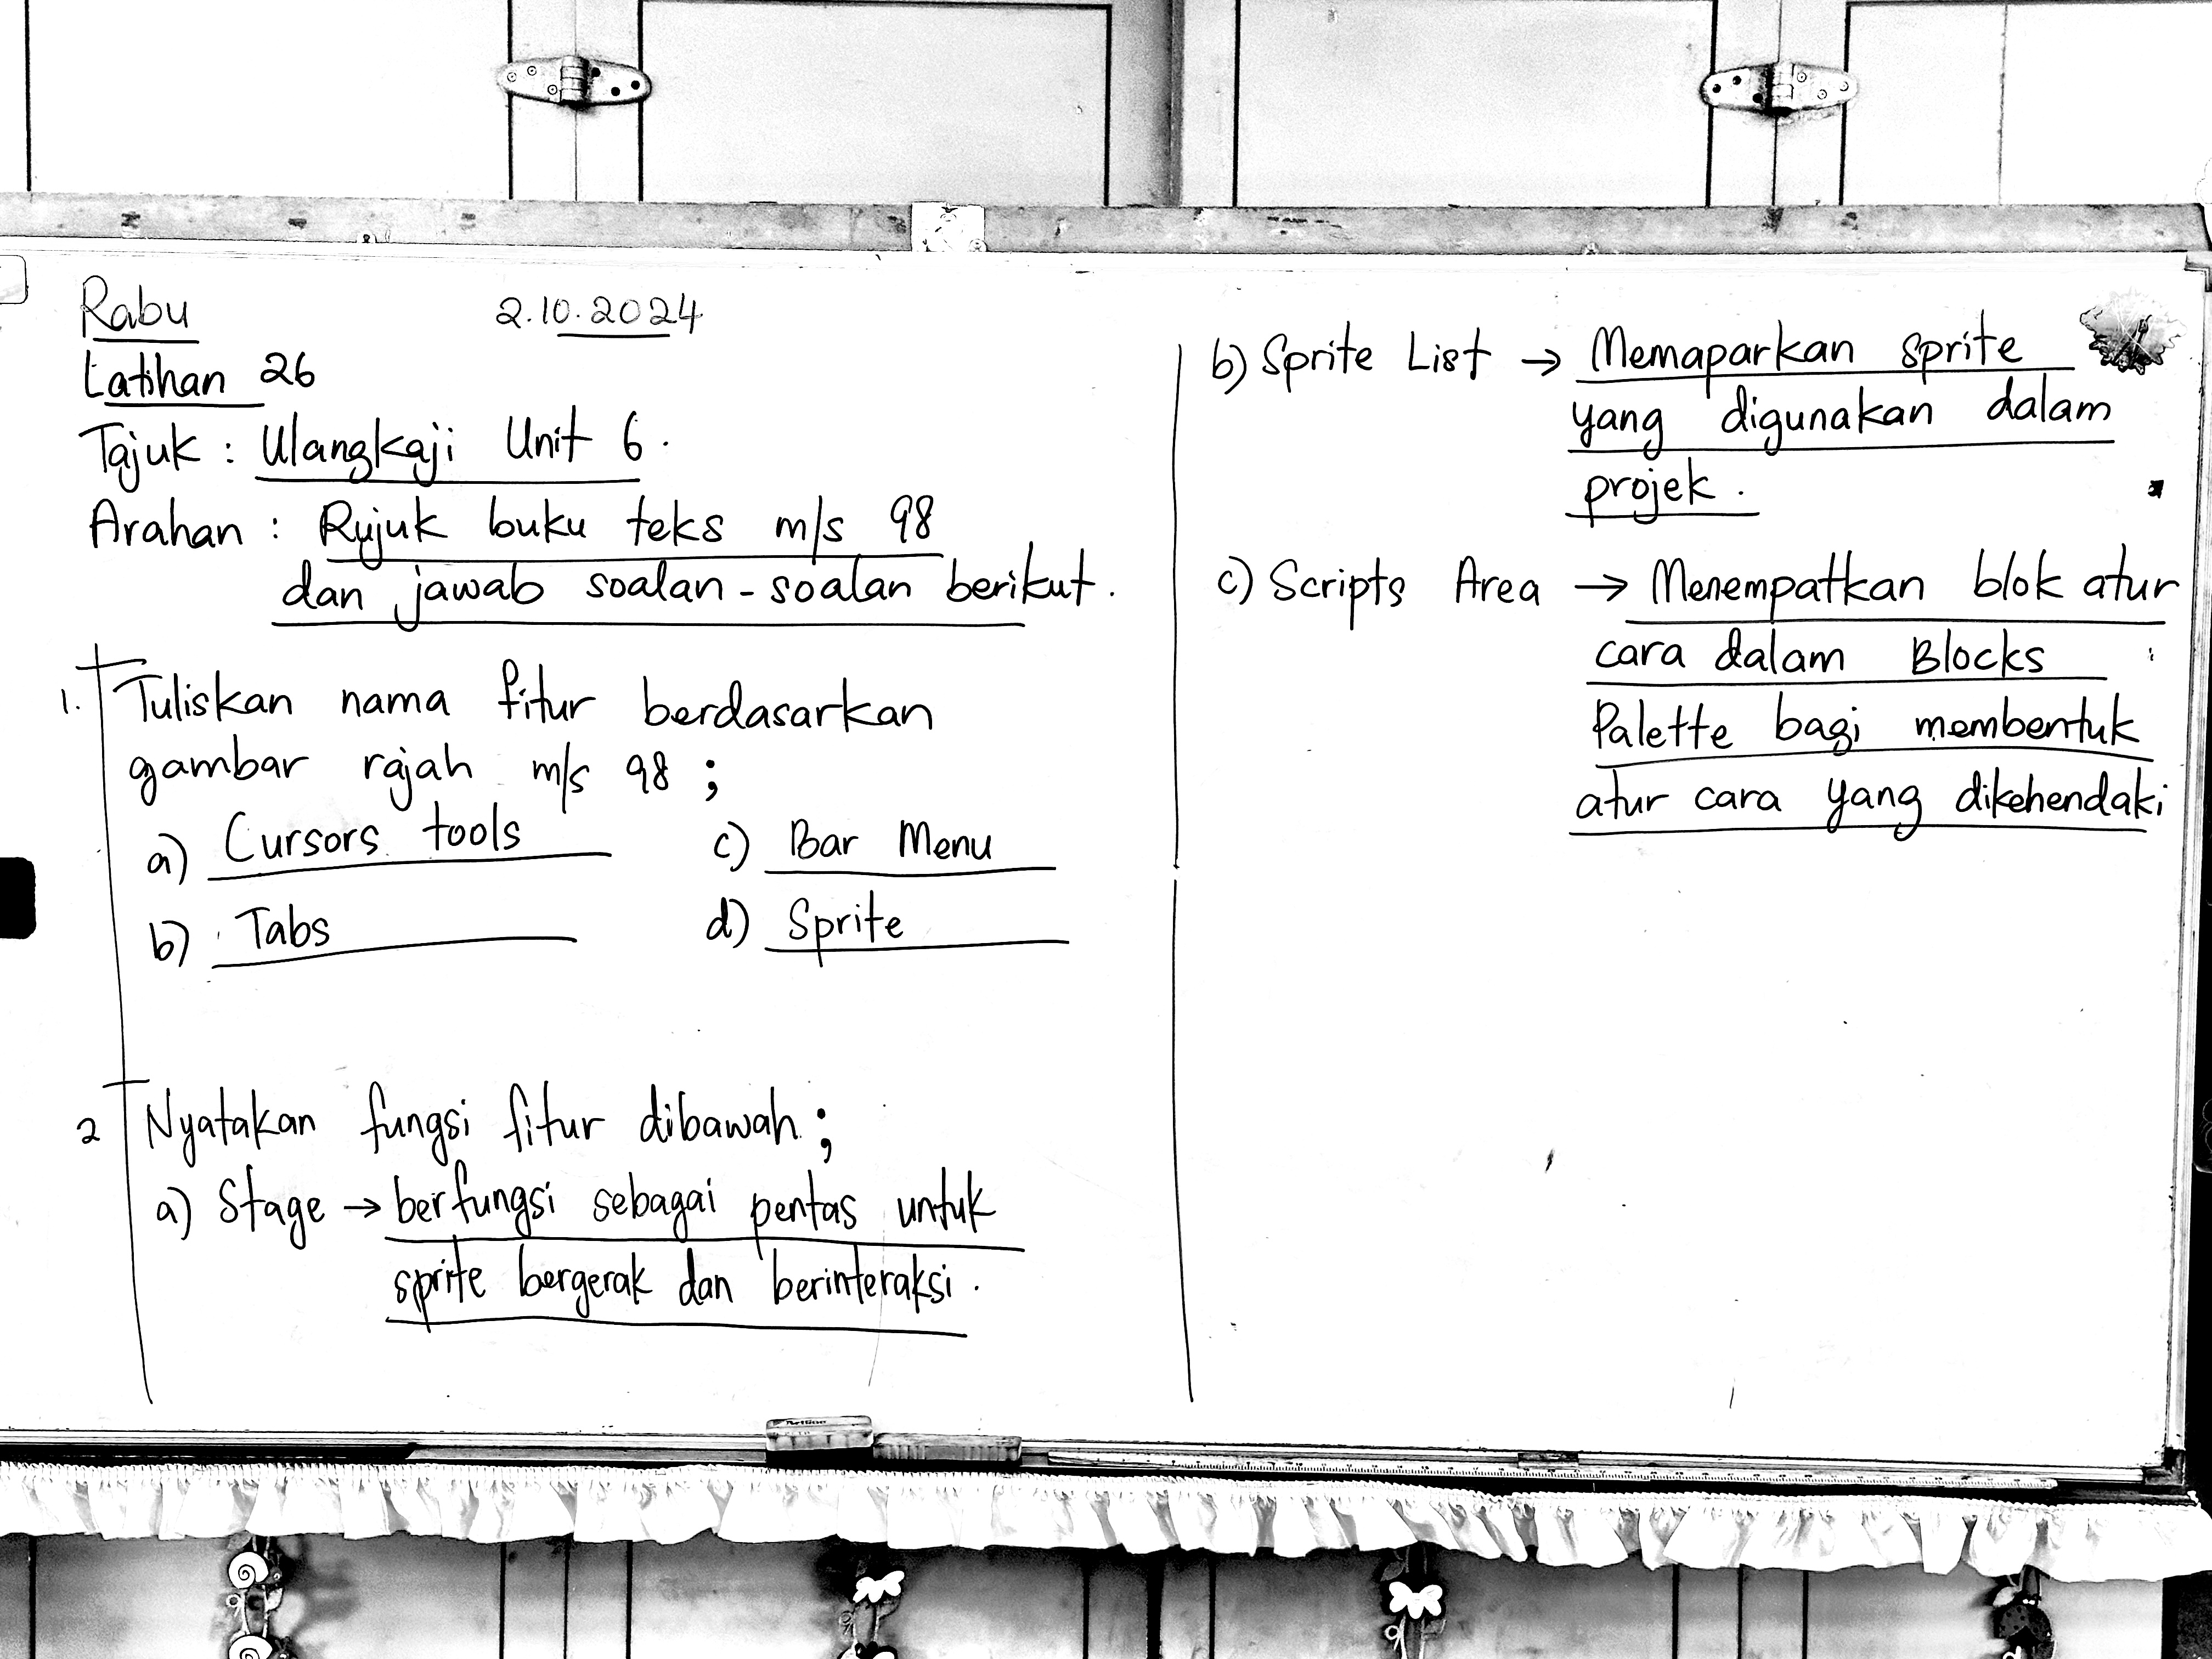 Rabu 2.10.2024
Latihan 26
Tajuk : Ulangkaji Unit 6.
Arahan : Rujuk buku teks m/s 98
dan jawab soalan-soalan berikut.
1. Tuliskan nama fitur berdasarkan
gambar rajah m/s 98 ;
a) Cursors tools c) Bar Menu
b) Tabs d) Sprite
2 Nyatakan fungsi fitur dibawah ;
a) Stage → berfungsi sebagai pentas untuk
sprite bergerak dan berinteraksi.
b) Sprite List → Memaparkan sprite
yang digunakan dalam
projek.
c) Scripts Area → Menempatkan blok atur
cara dalam Blocks
Palette bagi membentuk
atur cara yang dikehendaki